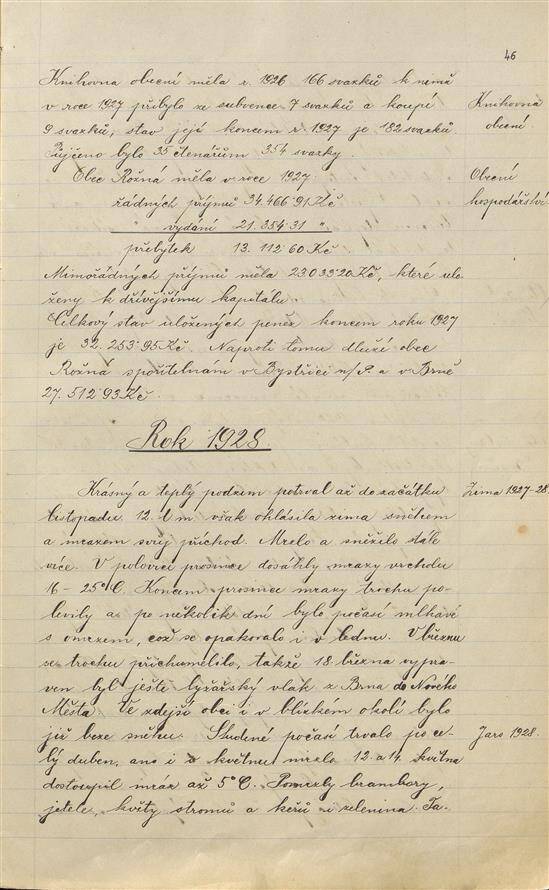 46
Knihovna obecní měla r. 1926 166 svazků k nimž
v roce 1927 přibylo ze subvence 7 svazků a koupí
9 svazků, stav její koncem r. 1927 je 182 svazků.
Půjčeno bylo 35 čtenářům 354 svazky.
Knihovna
obecní.
Obec Rožná měla v roce 1927:
řádných příjmů 34.466·91 Kč
vydání 21.354·31 "
přebytek 13.112·60 Kč.
Obecní
hospodářství
Mimořádných příjmů měla 23.033·20 Kč, které ulo-
ženy k dřívějšímu kapitálu.
Celkový stav uložených peněz koncem roku 1927
je 32.253·95 Kč. Naproti tomu dluží obec
Rožná spořitelnám v Bystřici n/P. a v Brně
27.512·93 Kč.
Rok 1928.
Krásný a teplý podzim potrval až do začátku
listopadu. 12. t. m. však ohlásila zima sněhem
a mrazem svůj příchod. Mrzlo a sněžilo stále
více. V polovici prosince dosáhly mrazy vrcholu
16 – 25° C. Koncem prosince mrazy trochu po-
levily a po několik dní bylo počasí mlhavé
s omrzem, což se opakovalo i v lednu. V březnu
se trochu přichumelilo, takže 18. března vypra-
ven byl ještě lyžařský vlak z Brna do Nového
Města. Ve zdejší obci i v blízkém okolí bylo
již beze sněhu. Studené počasí trvalo po ce-
lý duben, ano i v květnu mrzlo 12. a 14. května
dostoupil mráz až 5° C. Pomrzly brambory,
jetele, květy stromů a keřů i zelenina. Ta-
Zima 1927-28.
Jaro 1928.